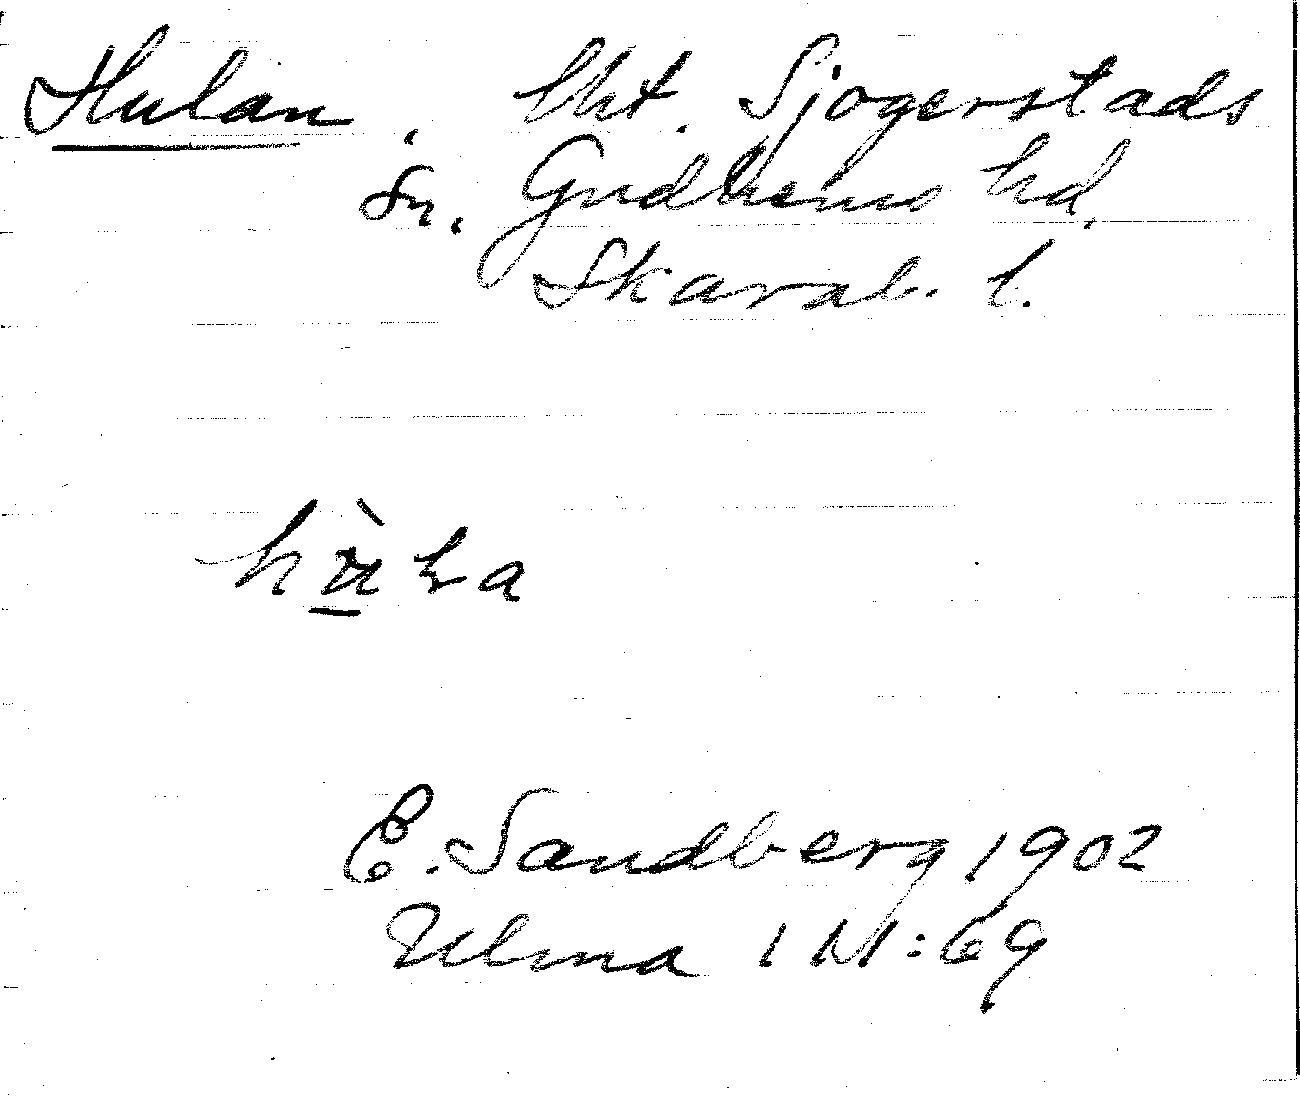 Hulan. Lht. Sjogerstads
sn. Gudhems hd.
Skarab. l.
E. Sandberg 1902
Ulma 1 N:69